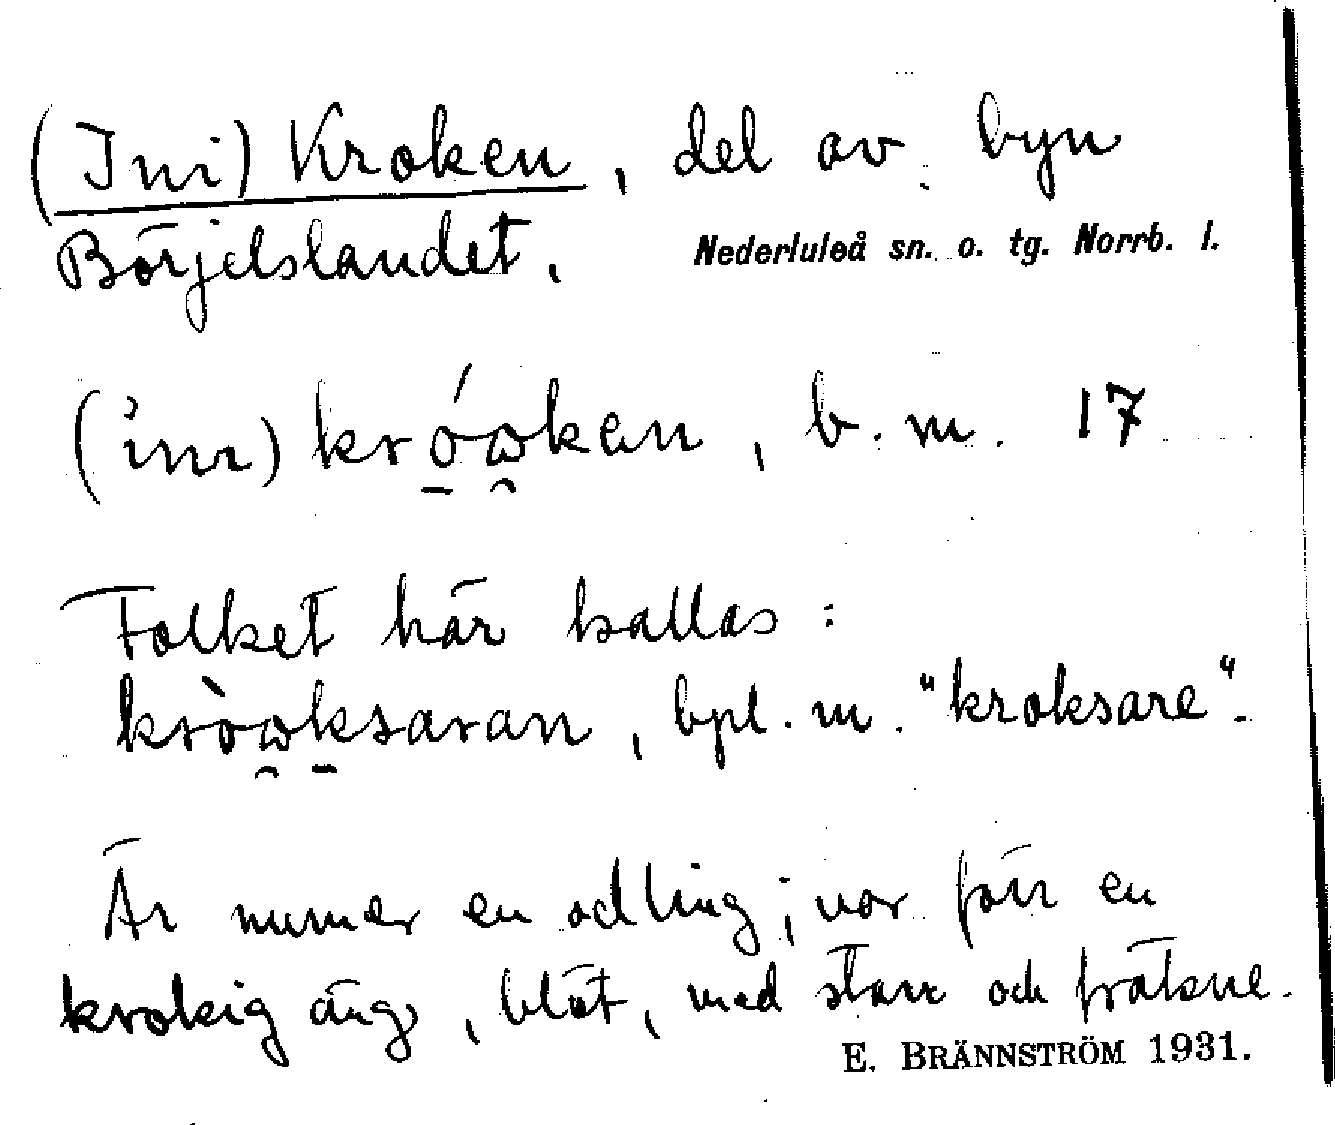 (Ini) Kroken, del av byn
Börjelslandet.
Nederluleå sn. o. tg. Norrb. l.
(inı) króωken, b. m. 17
Folket här kallas:
kròωksaran, bpl. m. "kroksare".
Är numer en odling; var förr en
krokig äng, blöt, med starr och fräkne.
E. BRÄNNSTRÖM 1931.